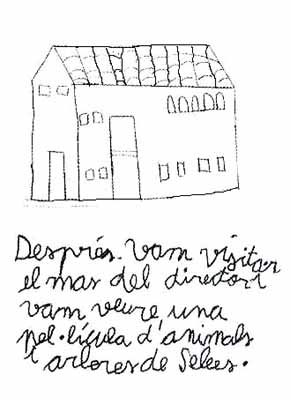 Després. Vam visitar
el mas del director i
vam veure una
pel·lícula d'animals
i arbres de Selees.